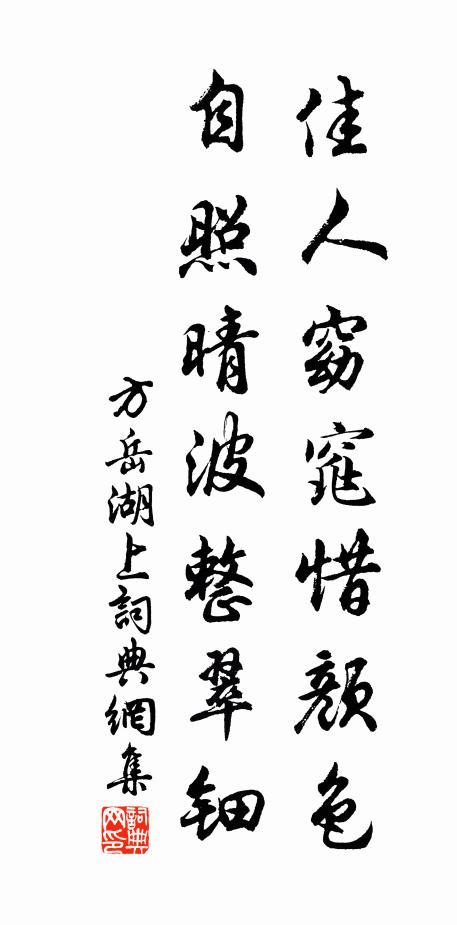 佳人窈窕惜顏色
自照晴波整翠鈿
方岳湖上詞典網集
詞典網印